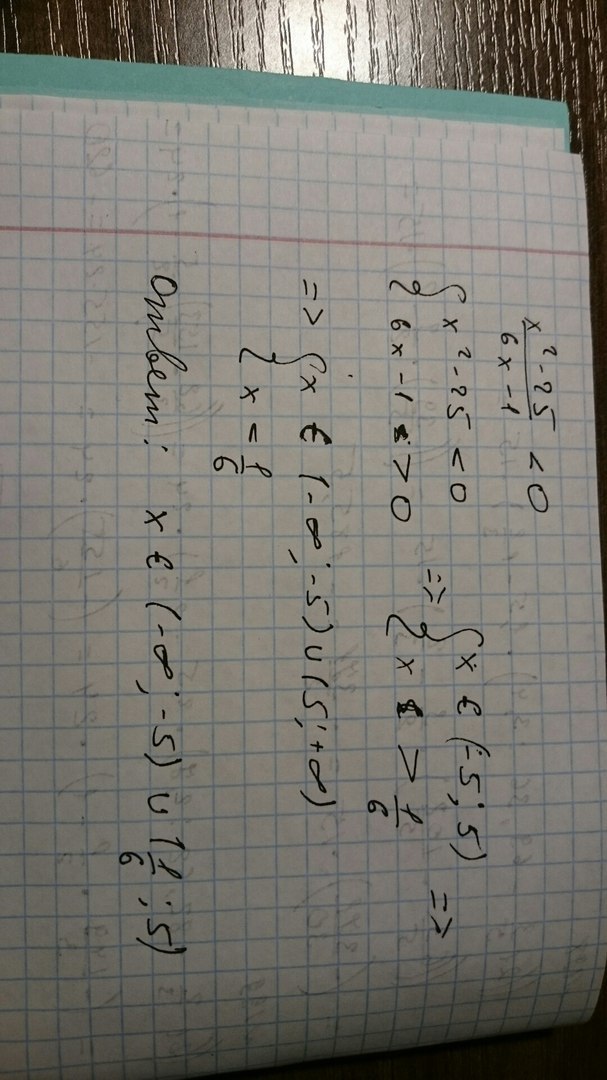 x² - 25 / 6x - 1 < 0
{ x² - 25 < 0
{ 6x - 1 > 0 => { x ∈ (-5; 5)
{ x > 1/6 =>
=> { x ∈ (-∞; -5) ∪ (5; +∞)
{ x = 1/6
Ответ: x ∈ (-∞; -5) ∪ (1/6; 5)